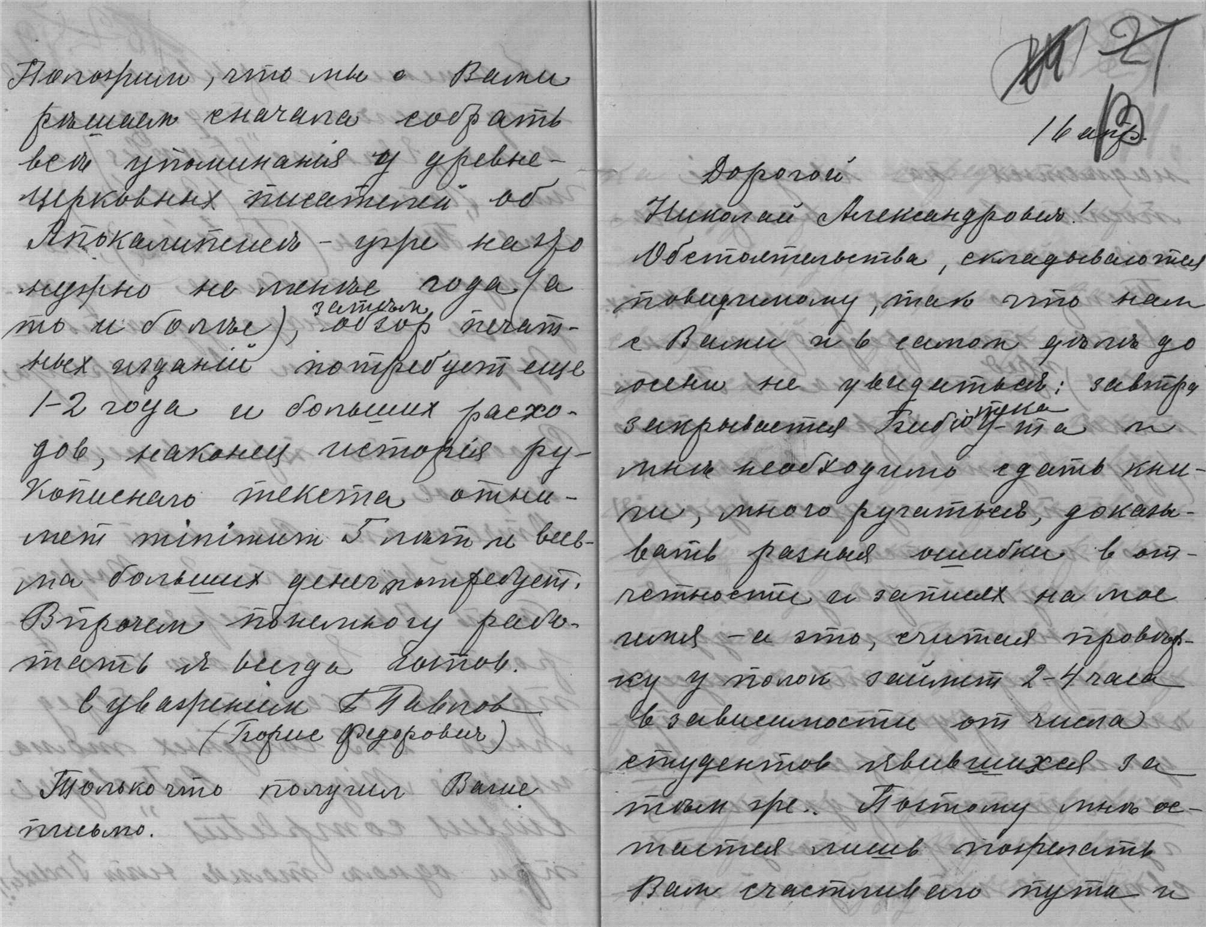 Положим, что мы с Вами
рѣшаем сначала собрать
всѣ упоминанія у древне-
церковных писателей об
Апокалипсисѣ – уже на это
нужно не менѣе года (а
то и болѣе), затѣм обзор печат-
ных изданій потребует еще
1-2 года и больших расхо-
дов, наконец исторія ру-
кописнаго текста отни-
мет minimum 5 лѣт и весь-
ма больших денег потребует.
Впрочем понемногу рабо-
тать я всегда готов.
С уваженіем Б Павлов
(Борис Федорович)
Только что получил Ваше
письмо.
27
В
16 апр.
Дорогой
Николай Александрович!
Обстоятельства, складываются
повидимому, так что нам
с Вами и в самом дѣлѣ до
осени не увидаться: завтра
закрывается Библіотека и
мнѣ необходимо сдать кни-
ги, много ругаться, доказы-
вать разныя ошибки в от-
четности и записях на мое
имя – а это, считая провѣр-
ку у полок займет 2-4 часа
в зависимости от числа
студентов явившихся за
тѣм же. Поэтому мнѣ ос-
тается лишь пожелать
Вам счастливаго пути и